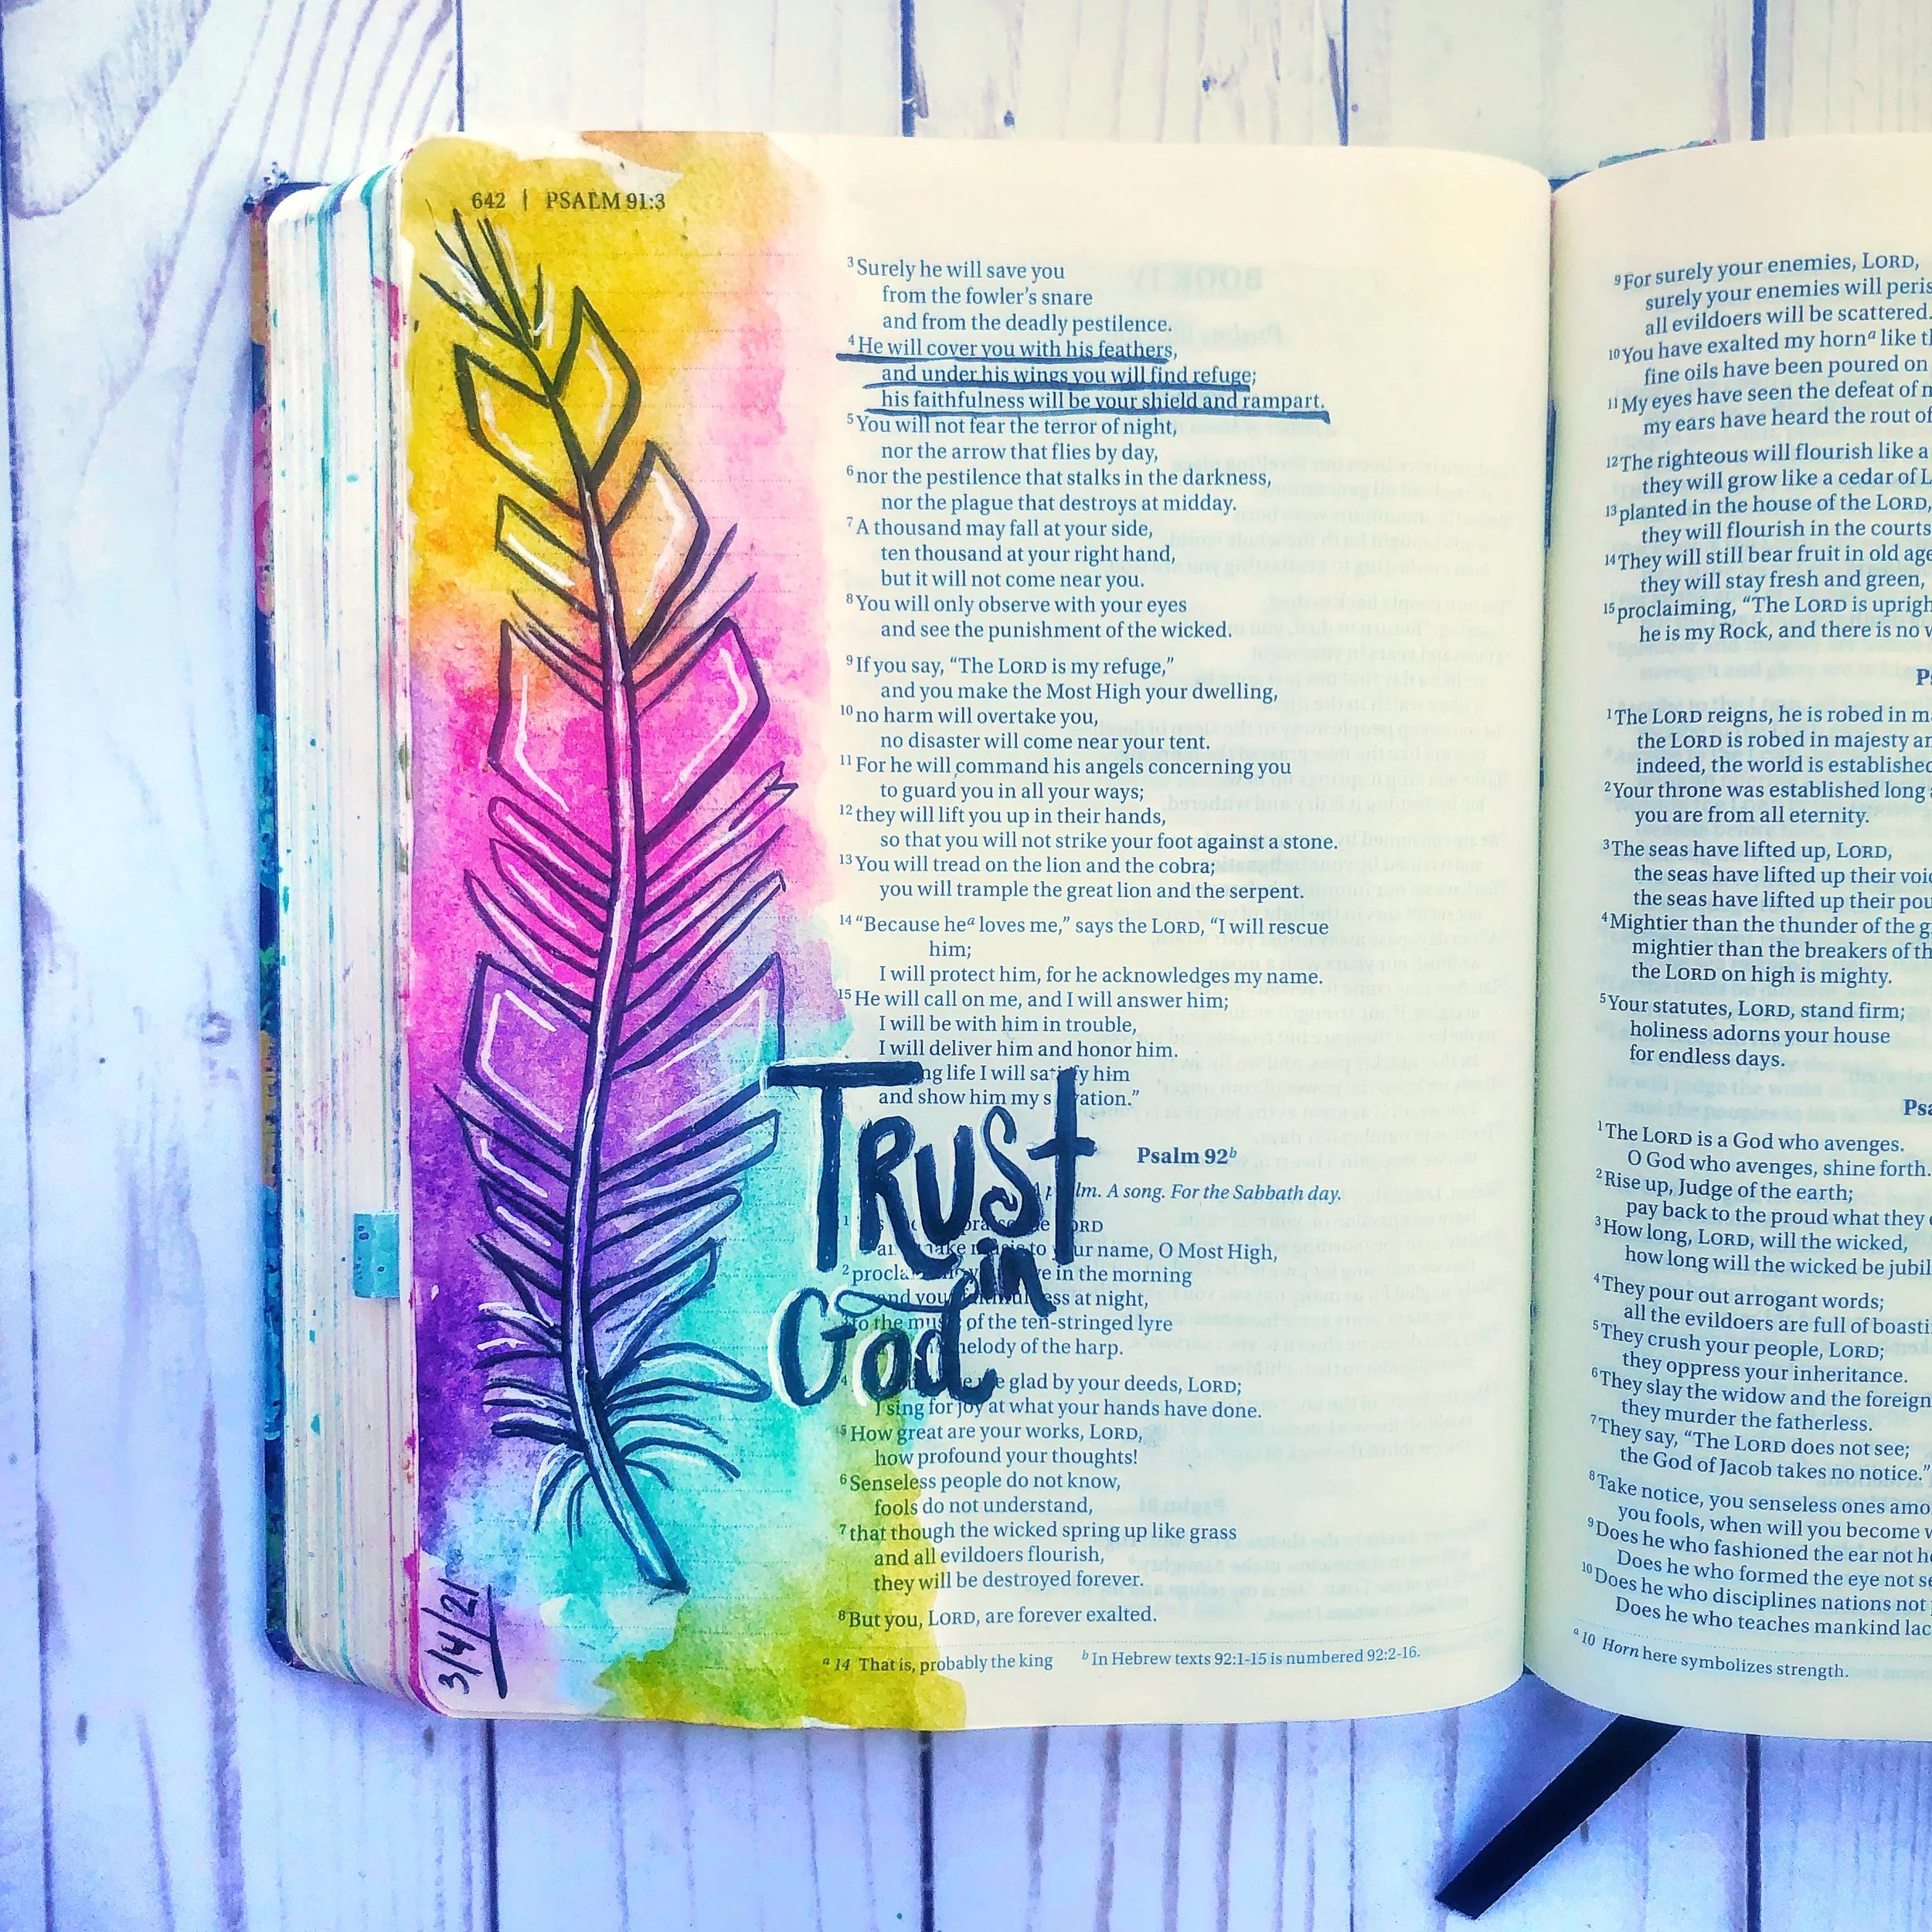 642 | PSALM 91:3
3 Surely he will save you
from the fowler's snare
and from the deadly pestilence.
4 He will cover you with his feathers,
and under his wings you will find refuge;
his faithfulness will be your shield and rampart.
5 You will not fear the terror of night,
nor the arrow that flies by day,
6 nor the pestilence that stalks in the darkness,
nor the plague that destroys at midday.
7 A thousand may fall at your side,
ten thousand at your right hand,
but it will not come near you.
8 You will only observe with your eyes
and see the punishment of the wicked.
9 If you say, “The LORD is my refuge,”
and you make the Most High your dwelling,
10 no harm will overtake you,
no disaster will come near your tent.
11 For he will command his angels concerning you
to guard you in all your ways;
12 they will lift you up in their hands,
so that you will not strike your foot against a stone.
13 You will tread on the lion and the cobra;
you will trample the great lion and the serpent.
14 “Because he a loves me,” says the LORD, “I will rescue
him;
I will protect him, for he acknowledges my name.
15 He will call on me, and I will answer him;
I will be with him in trouble,
I will deliver him and honor him.
life I will satisfy him
and show him my
TRUST
in
God
Psalm 92 b
A song. For the Sabbath day.
1 LORD
to your name, O Most High,
2 in the morning
and your at night,
3 to the music of the ten-stringed lyre
melody of the harp.
4 glad by your deeds, LORD;
I sing for joy at what your hands have done.
5 How great are your works, LORD,
how profound your thoughts!
6 Senseless people do not know,
fools do not understand,
7 that though the wicked spring up like grass
and all evildoers flourish,
they will be destroyed forever.
8 But you, LORD, are forever exalted.
a 14 That is, probably the king b In Hebrew texts 92:1-15 is numbered 92:2-16.
3/4/21
9 For surely your enemies, LORD,
surely your enemies will
all evildoers will be scattered.
10 You have exalted my horn a like
fine oils have been poured on
11 My eyes have seen the defeat of
my ears have heard the rout of
12 The righteous will flourish like a
they will grow like a cedar of
13 planted in the house of the LORD,
they will flourish in the courts
14 They will still bear fruit in old age
they will stay fresh and green,
15 proclaiming, “The LORD is
he is my Rock, and there is no
1 The LORD reigns, he is robed in
the LORD is robed in majesty
indeed, the world is established
2 Your throne was established long
you are from all eternity.
3 The seas have lifted up, LORD,
the seas have lifted up their
the seas have lifted up their
4 Mightier than the thunder of the
mightier than the breakers of
the LORD on high is mighty.
5 Your statutes, LORD, stand firm;
holiness adorns your house
for endless days.
1 The LORD is a God who avenges.
O God who avenges, shine forth.
2 Rise up, Judge of the earth;
pay back to the proud what they
3 How long, LORD, will the wicked,
how long will the wicked be
4 They pour out arrogant words;
all the evildoers are full of
5 They crush your people, LORD;
they oppress your inheritance.
6 They slay the widow and the
they murder the fatherless.
7 They say, “The LORD does not see;
the God of Jacob takes no notice.”
8 Take notice, you senseless ones
you fools, when will you become
9 Does he who fashioned the ear not
Does he who formed the eye not
10 Does he who disciplines nations not
Does he who teaches mankind
a 10 Horn here symbolizes strength.